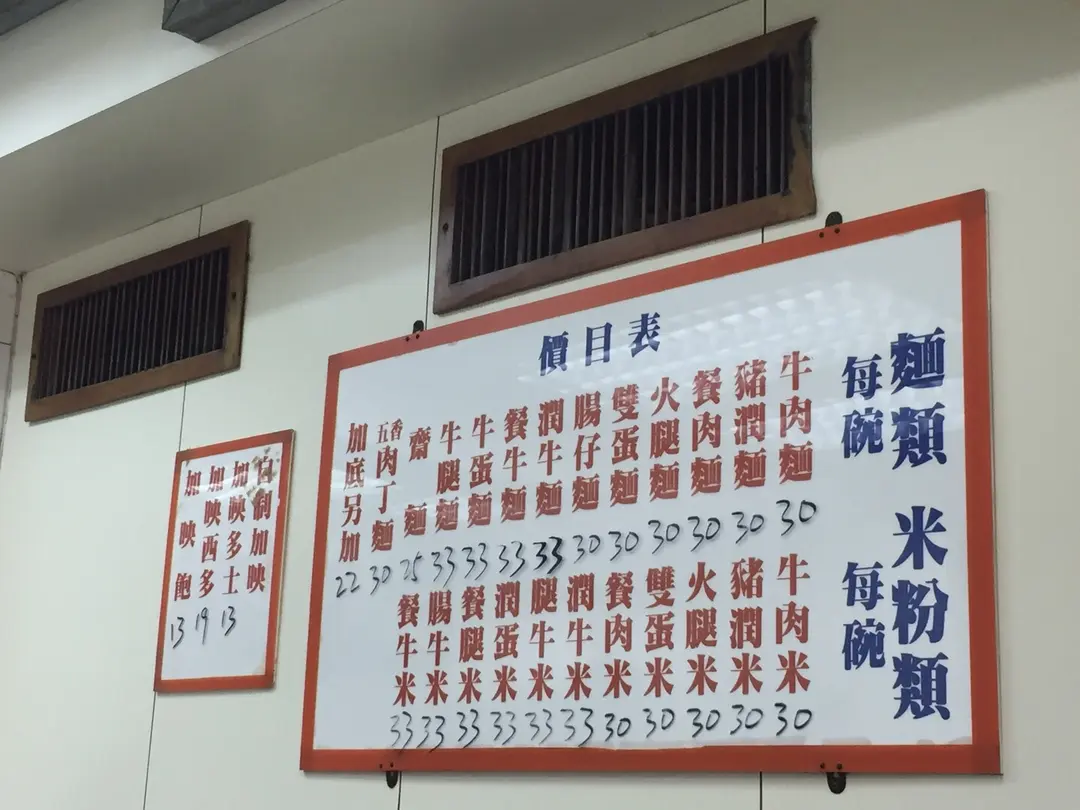 價目表
麵類 米粉類
每碗 每碗
牛肉麵 30
豬潤麵 30
餐肉麵 30
火腿麵 30
雙蛋麵 30
腸仔麵 30
潤牛麵 33
餐牛麵 33
牛蛋麵 33
牛腿麵 33
齋麵 25
五香肉丁麵 30
加底另加 22
牛肉米 30
豬潤米 30
火腿米 30
雙蛋米 30
餐肉米 30
潤牛米 33
腿牛米 33
潤蛋米 33
餐腿米 33
腸牛米 33
餐牛米 33
自制加映
加映多士 13
加映西多 19
加映飽 13